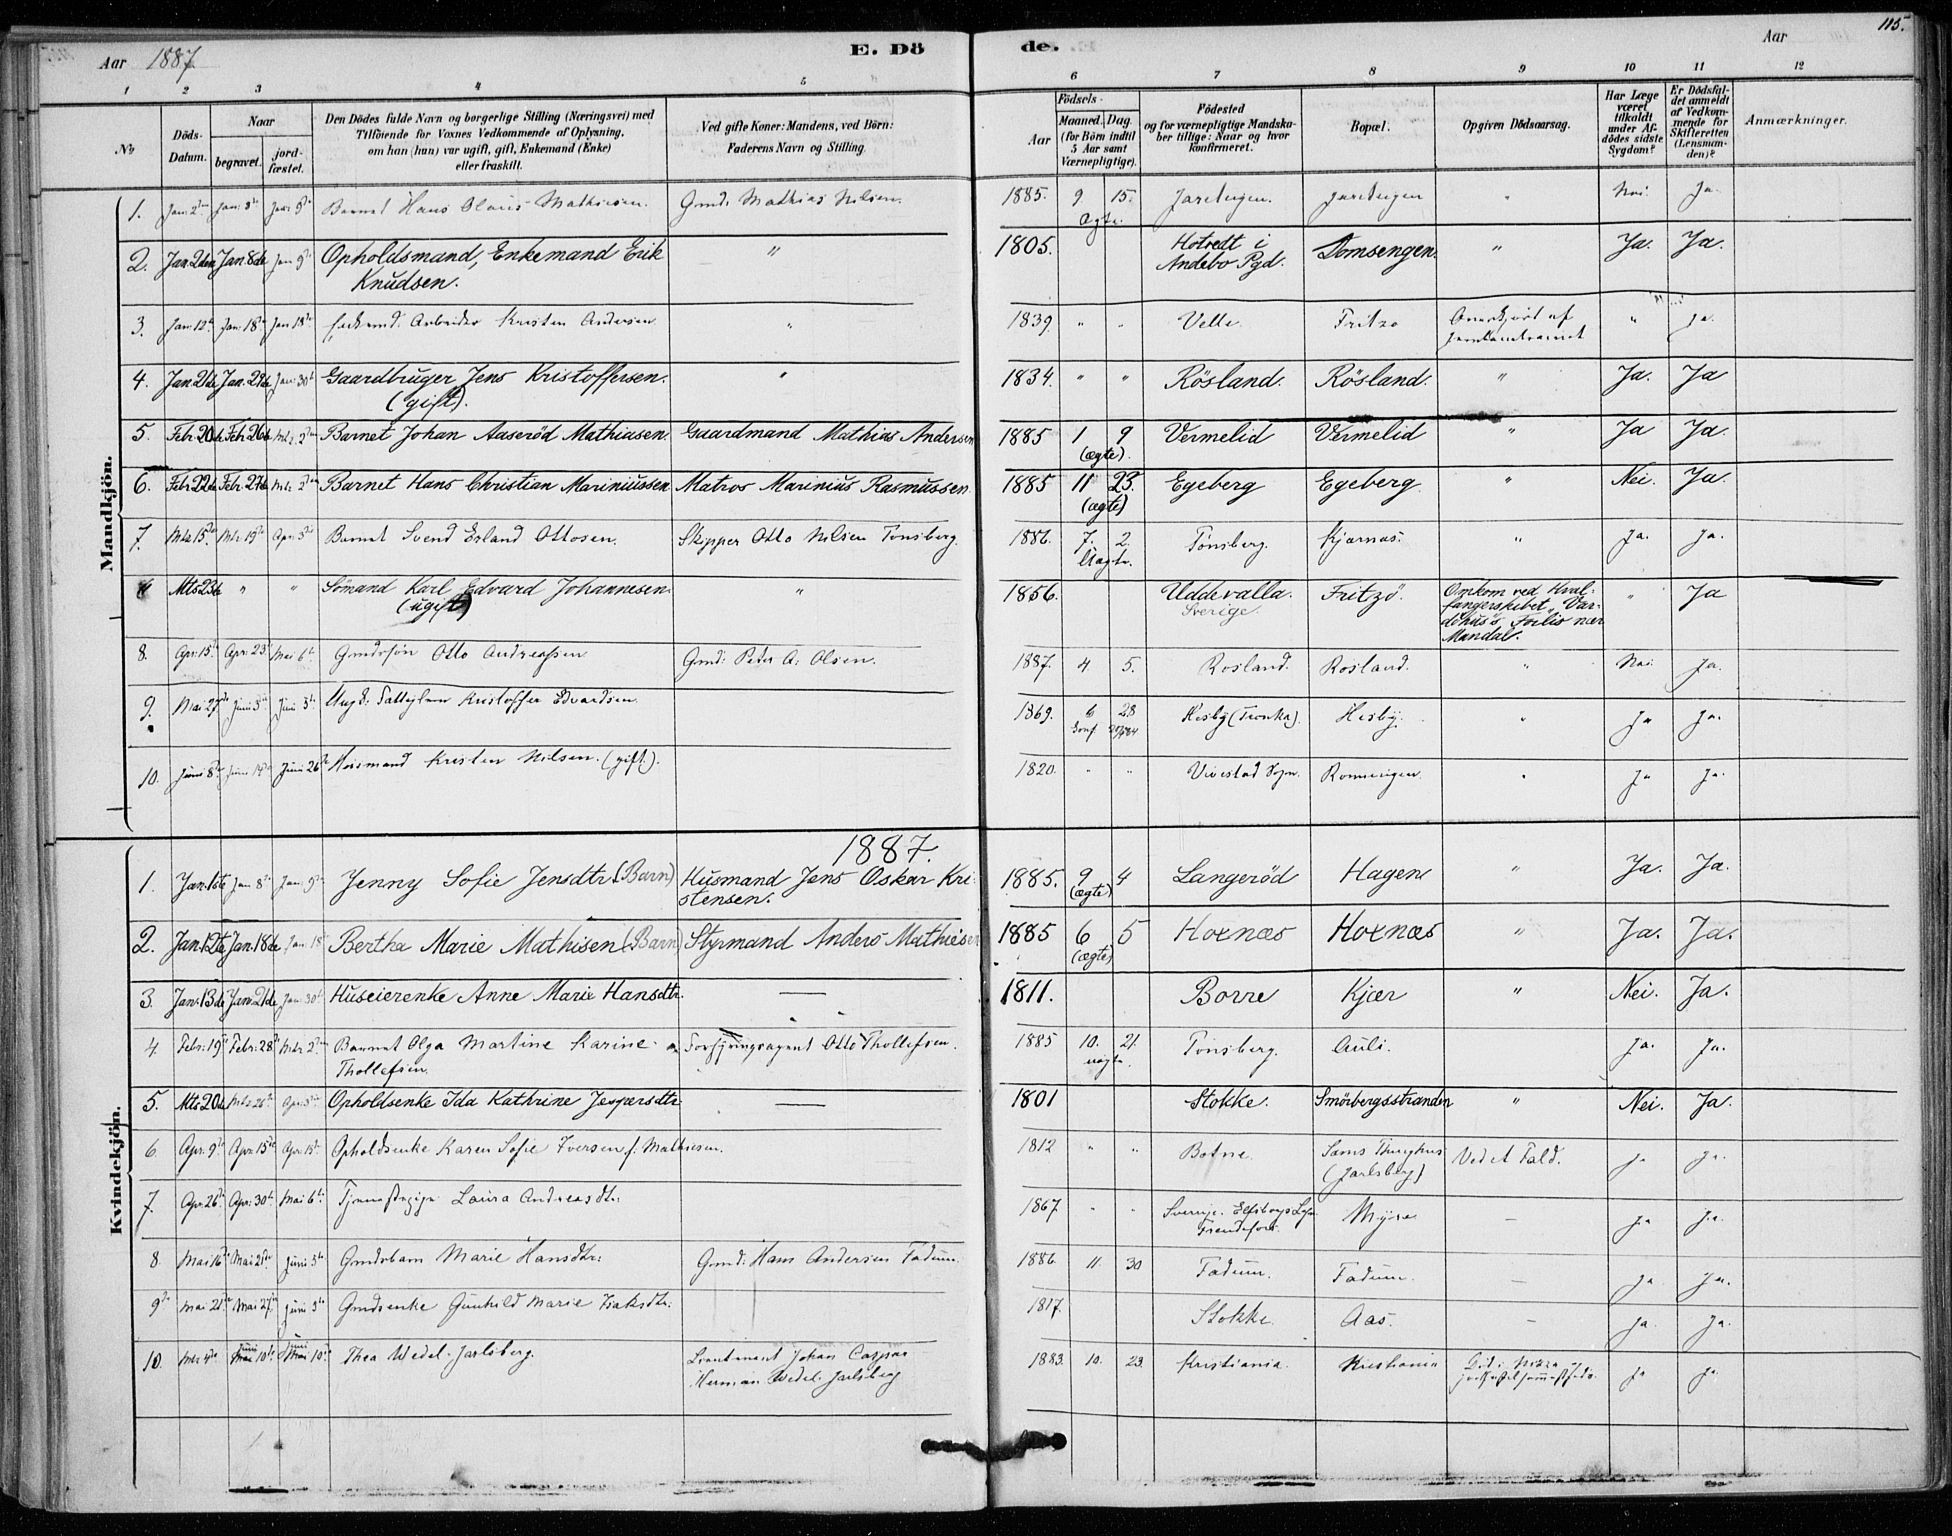 Aar 1887. E. Dö de. Aar 115.
1 2 3 4 5 6 7 8 9 10 11 12
No
Döds-Datum.
Naar
begravet.
jord-fæstet.
Den Dödes fulde Navn og borgerlige Stilling (Næringsvei) med
Tilföiende for Voxnes Vedkommende af Oplysning,
om han (hun) var ugift, gift, Enkemand (Enke)
eller fraskilt.
Ved gifte Koner: Mandens, ved Börn:
Faderens Navn og Stilling.
Födsels-
Aar
Maaned. Dag.
(for Börn indtil
5 Aar samt
Værnepligtige).
Födested
og for værnepligtige Mandska-
ber tillige: Naar og hvor
konfirmeret.
Bopæl.
Opgiven Dödsaarsag.
Har Læge
været
tilkaldt
under Af-
dödes sidste
Sygdom?
Er Dödsfal-
det anmeldt
af Vedkom-
mende for
Skifteretten
(Lensman-
den)?
Anmærkninger.
Mandkjön.
1. Jan: 2den Jan: 8de Jan: 9de Barnet Hans Olaus Mathisen. Gmd: Mathias Nilsen. 1885. 9 15. Jareteigen. Jareteigen " Nei. Ja.
Ægte.
2. Jan. 2den Jan. 8de Jan 9de Opholdsmand, Enkemand Erik " 1805. Hotvedt i Domsengen. " Ja. Ja.
Knudsen. Andebo Pgd.
3. Jan: 12te Jan: 18de Jan 18de Arbeider Kristen Andersen " 1839. " " Velle. Fritzo Overkjört af " Ja.
4. Jan. 21de Jan. 29de Jan: 30te Gaardbruger Jens Kristoffersen. " 1834. " " Rösland. Rösland. " Ja. Ja
(gift).
5. Febr. 20de Febr. 26de Mts. 2den Barnet Johan Aaseröd Mathiasen. Gaardmand Mathias Andersen 1885 1 9 Vermelid Vermelid " Ja Ja.
(ægte).
6. Febr. 22de Febr. 27de Mts 2den Barnet Hans Christian Mariniussen Matros Marinius Rasmussen. 1885 11 23. Egeberg Egeberg. " Nei. Ja.
(ægte)
7. Mts 15de Mts 19de Apr: 3die Barnet Svend Erland Ottosen. Skipper Otto Nilsen Tönsberg. 1886. 7. 2. Tönsberg. Kjærnæs. " Ja. Ja.
Uægte.
Mts 23de " " Sömand Karl Edvard Johannesen. " 1856. Uddevalla. Fritzö. Omkom ved Hval- " Ja
(ugift) Sverige. fangerskibet "Var-
döhus's Forlis nær
Mandal.
8. Apr: 15de Apr: 23de Mai 6te Gmdssön Otto Andreassen Gmd: Peder A. Olsen. 1887. 4 5. Rosland. Rosland. " Nei Ja.
9. Mai 27de Juni 3die Juni 5te Ungd: Kristoffer Edvardsen. 1869. 6 28 Hesby (Tronka). Hesby. " Ja Ja.
Conf
10. Juni 8de Juni 14de Juni 26de Huusmand Kristen Nilsen. (gift). 1820. " " Vivestad Sogn. Ronningen. " Ja Ja.
1887.
Kvindekjön.
1. Jan. 1ste Jan 8de Jan: 9de Jenny Sofie Jensdtr. (Barn) Husmand Jens Oskar Kri- 1885. 9 4 Langeröd Hagen " Ja. Ja.
stensen. (ægte)
2. Jan. 12te Jan. 18de Jan: 18 Bertha Marie Mathisen (Barn) Styrmand Anders Mathisen 1885 6 5 Hoxnæs Hoxnæs " Ja. Ja.
(ægte)
3. Jan. 13de Jan. 21de Jan: 30te Huseierenke Anne Marie Hansdtr. — 1811. Borre Kjær " Nei. Ja.
4. Febr: 19de Febr: 28de Mts 2den Barnet Olga Martine Karine Forsyringsagent Otto Thollefsen. 1885 10. 21. Tönsberg. Auli. Ja. Ja.
Thollefsen. uægte.
5. Mts 20de Mts 26de Apr: 3die Opholdsenke Ida Kathrine Jespersdtr. — 1801 Stokke. Smörbergsstranden " Nei. Ja.
6 Apr: 9de Apr: 15de Apr: 15de Opholdsenke Karen Sofie Iversen f: Mathiesen. 1812 " " Botne. Ved et Fald. Ja Ja.
(Jarlsberg)
7. Apr: 26te Apr: 30te Mai 6te Tjenestepige Laura Andreasdtr. 1867 " " Sverrige. Elfsborgs Lehn Myre — Ja Ja.
8. Mai 16de Mai 21de Juni 5te Gmdsbarn Marie Hansdtr: Gmd: Hans Andersen Fadum. 1886. 11. 30 Fadum. Fadum. — Ja Ja.
9de Mai 21de Mai 27de Juni 5te Gmdsenke Gunhild Marie Isaksdtr: 1817. Stokke. Aas. — Ja. Ja.
10. Mts 4de Juni 10de Juni 10de Thea Wedel-Jarlsberg. Lieutenant Johan Caspar 1883. 10. 23. Kristiania. Kristiania Ja Ja.
Herman Wedel Jarlsberg